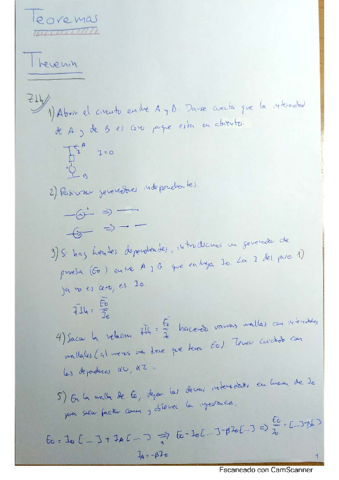 Teoremas
Thevenin
Zth
1) Abrir el circuito entre A y B. Darse cuenta que la intensidad
de A y de B es cero porque están en abierto.
A
I=0
B
2) Pasivar generadores independientes
⇒
⇒
3) Si hay fuentes dependientes, introducimos un generador de
prueba (E₀) entre A y B que entrega I₀. La I del paso 1)
ya no es cero, es I₀
Zth = E₀/I₀
4) Sacar la relación Zth = E₀/I₀ haciendo mallas con intensidades
mallales (al menos una tiene que tener E₀) Tener cuidado con
las dependientes
5) En la malla de E₀, dejar las demás intensidades en función de I₀
para sacar factor común y obtener la impedancia.
E₀ = I₀[...] + I_A[...] ⇒ E₀ = I₀[...] - βI₀[...] ⇒ E₀/I₀ =
I_A = -βI₀
1
Escaneado con CamScanner